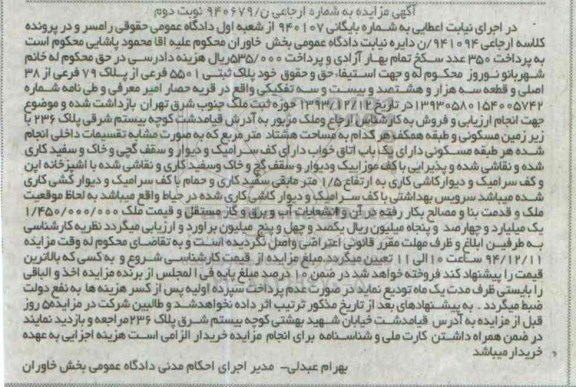 آگهی مزایده به شماره ارجاعی ن/۹۴۰۶۷۹ نوبت دوم
در اجرای نیابت اعطایی به شماره بایگانی ۹۴۰۱۰۷ از شعبه اول دادگاه عمومی حقوقی رامسر و در پرونده
کلاسه ارجاعی ۹۴۱۰۹۴/ن دایره نیابت دادگاه عمومی بخش خاوران محکوم علیه اقا محمود پاشایی محکوم است
به پرداخت ۳۵۰ عدد سکخ تمام بهار آزادی و پرداخت ۵۳۵/۰۰۰ریال هزینه دادرسی در حق محکوم له خانم
شهربانو نوروز محکوم له و جهت استیفاء حق و حقوق خود پلاک ثبتی ۵۵۰۱ فرعی از پلاک ۷۹ فرعی از ۳۸
اصلی و قطعه سه هزار و هشتصد و بیست و سه تفکیکی واقع در قریه حصار امیر معرفی و طی نامه شماره
۱۳۹۳۰۵۸۰۱۵۴۰۰۵۷۴۲ در تاریخ ۱۳۹۳/۱۲/۱۲ حوزه ثبت ملک جنوب شرق تهران بازداشت شده و موضوع
جهت انجام ارزیابی و فروش به کارشناس ارجاع وملک مزبور به آدرس قیامدشت کوچه بیستم شرقی پلاک ۲۳۶ با
زیر زمین مسکونی و طبقه همکف هر کدام به مساحت هشتاد متر مربع که به صورت مشابه تقسیمات داخلی انجام
شده هر طبقه مسکونی دارای یک باب اتاق خواب دارای کف سرامیک و دیوار و سقف گچی و خاک و سفید کاری
شده و نقاشی شده و پذیرایی با کف موزاییک ودیوار و سقف گچ و خاک وسفید کاری و نقاشی شده با اشپزخانه اپن
و کف سرامیک و دیوارکاشی کاری به ارتفاع ۱/۵ متر مابقی سفید کاری و حمام با کف سرامیک و دیوار کشی کاری
شده میباشد سرویس بهداشتی با کف سرامیک و دیوار کاشی کاری شده در حیاط واقع میباشد به لحاظ موقعیت
ملک و قدمت بنا و مصالح بکار رفته در آن و انشعابات آب و برق و گاز مستقل و قیمت ملک ۱/۴۵۰/۰۰۰/۰۰۰
یک میلیارد و چهارصد و پنجاه میلیون ریال یکصد و چهل و پنج میلیون براورد و ارزیابی میگردد نظریه کارشناسی
به طرفین ابلاغ و ظرف مهلت مقرر قانونی اعتراضی واصل نگردیده است و به تقاضای محکوم له وقت مزایده
۹۴/۱۲/۱۱ ساعت ۱۰ الی ۱۱ تعیین میگردد مبلغ مزایده از قیمت کارشناسی شروع و به کسی که بالاترین
قیمت را پیشنهاد کند فروخته خواهد شد در ضمن ۱۰ درصد مبلغ پایه فی المجلس از برنده مزایده اخذ و الباقی
را بایستی ظرف مدت یک ماه تودیع نماید در صورت عدم پرداخت سپرده اولیه پس از کسر هزینه ها به نفع دولت
ضبط میگردد . به پیشنهادهای بعد از تاریخ مذکور ترتیب اثر داده نخواهدشد و طالبین شرکت در مزایده۵ روز
قبل از مزایده به آدرس قیامدشت خیابان شهید بهشتی کوچه بیستم شرق پلاک ۲۳۶ مراجعه و بازدید نمایند
در ضمن همراه داشتن کارت ملی و شناسنامه برای انجام مزایده خریدار الزامی است هزینه اجرایی به عهده
خریدار میباشد
بهرام عبدلی- مدیر اجرای احکام مدنی دادگاه عمومی بخش خاوران